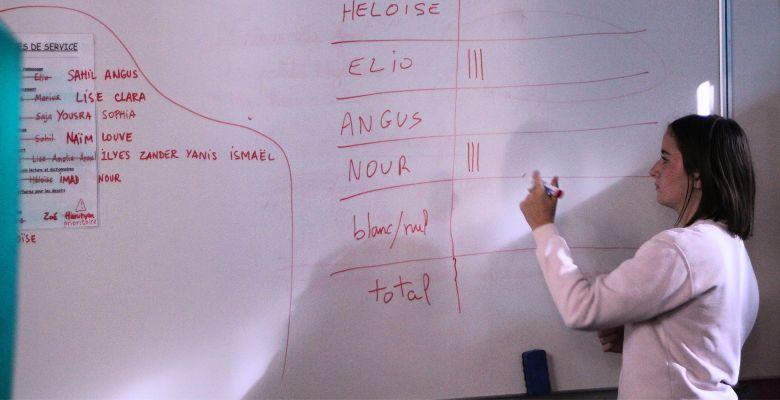 ES DE SERVICE
Elio SAHIL ANGUS
Marius LISE CLARA
Saja YOUSRA SOPHIA
Sahil NAÏM LOUVE
Lise Amalia ILYES ZANDER YANIS ISMAËL
Héloïse IMAD NOUR
Zoé
prioritaire
ÏSE
HELOISE
ELIO |||
ANGUS
NOUR |||
blanc/nul
total